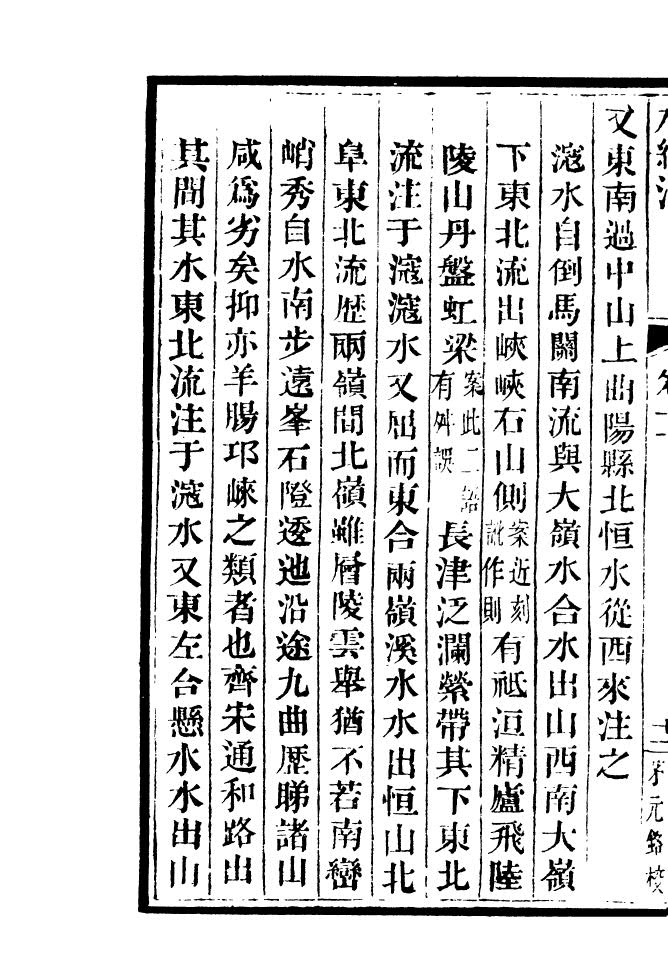 又東南過中山上曲陽縣北恒水從西來注之
滱水自倒馬關南流與大嶺水合水出山西南大嶺
下東北流出峽峽石山側案近刻訛作則有祇洹精廬飛陸
陵山丹盤虹梁案此二語有舛誤長津泛瀾縈帶其下東北
流注于滱滱水又屈而東合兩嶺溪水水出恒山北
阜東北流歴兩嶺間北嶺雖層陵雲舉猶不若南巒
峭秀自水南步遠峯石隥逶迤沿途九曲歴睇諸山
咸爲劣矣抑亦羊腸邛崍之類者也齊宋通和路出
其間其水東北流注于滱水又東左合懸水水出山